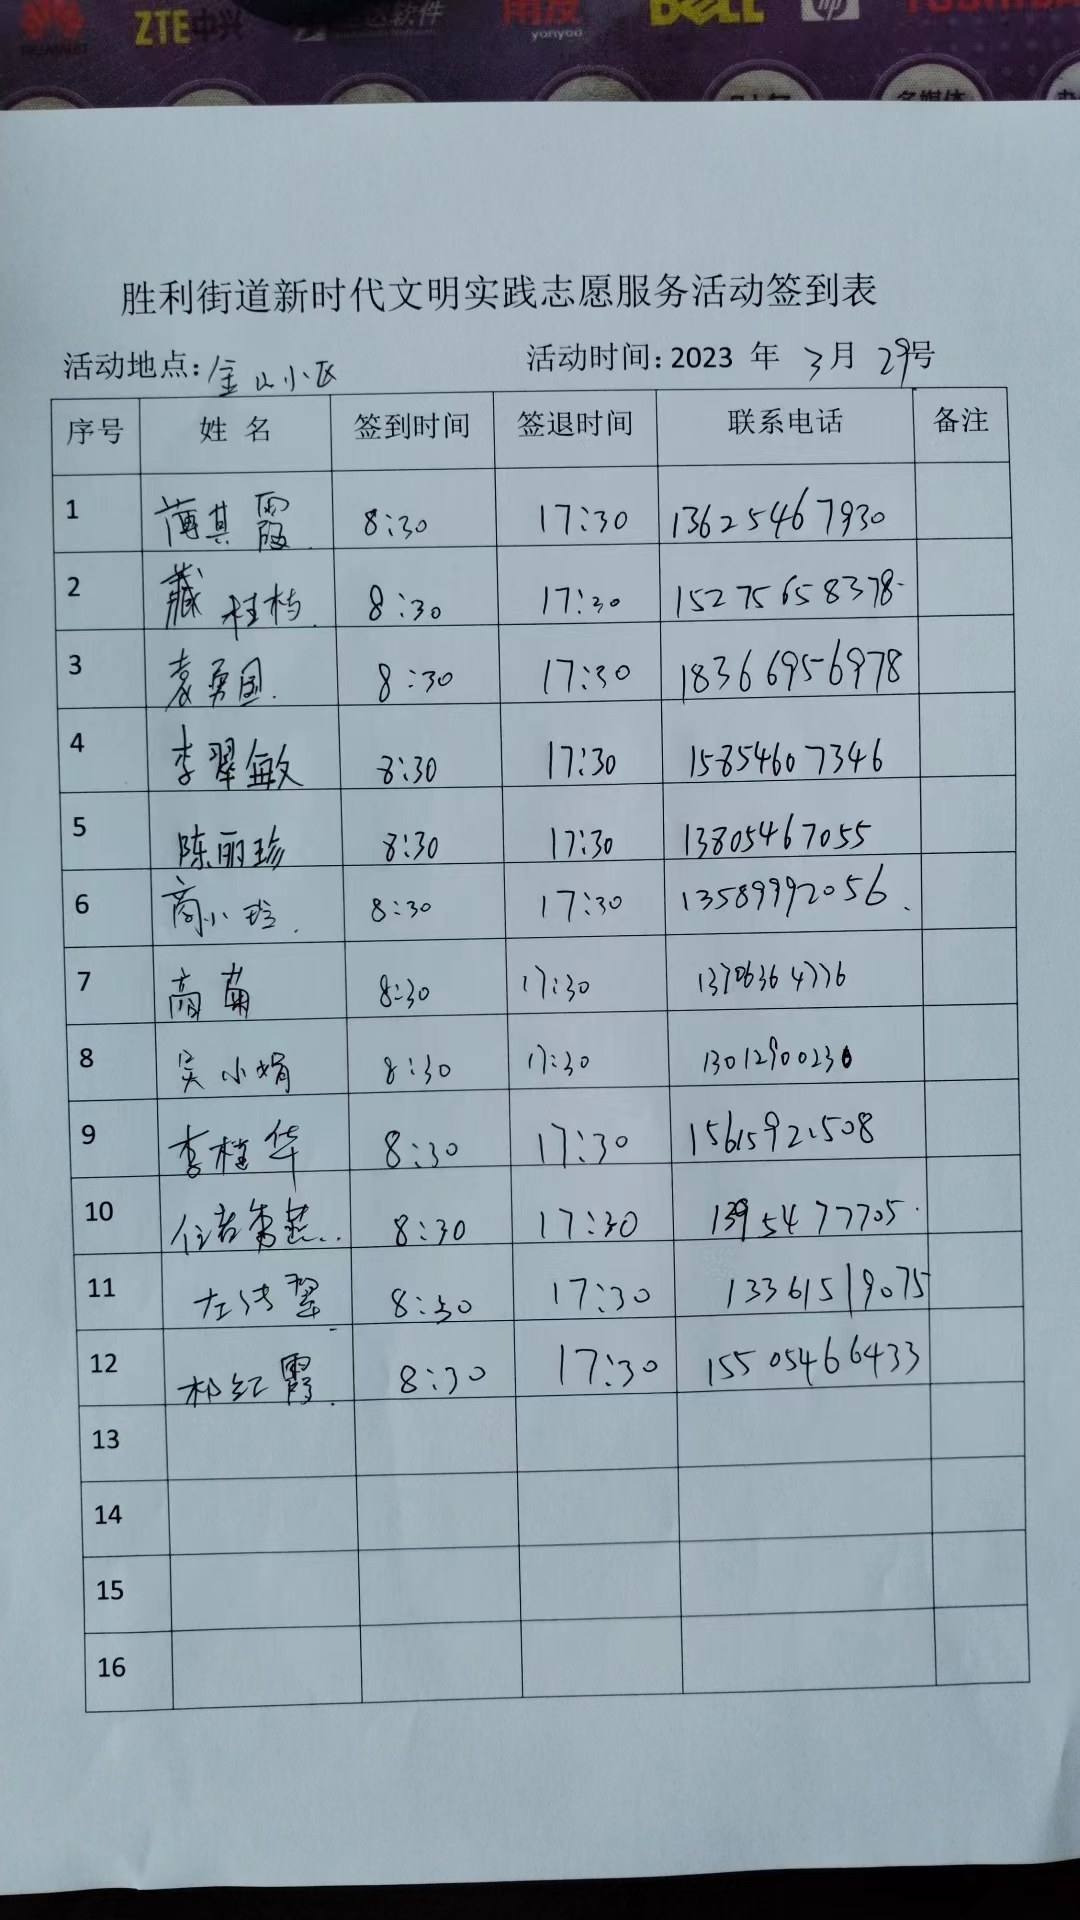 ZTE中兴 软件 用友 DELL hp TOSHIBA
yonyou
多媒体
胜利街道新时代文明实践志愿服务活动签到表
活动地点:金山小区 活动时间:2023 年 3月 29号
序号 姓 名 签到时间 签退时间 联系电话 备注
1 薄其霞 8:30 17:30 13625467930
2 藏桂档 8:30 17:30 15275658378
3 袁勇国 8:30 17:30 18366956978
4 李翠敏 8:30 17:30 15854607346
5 陈丽珍 8:30 17:30 13805467055
6 商小玲 8:30 17:30 13589992056
7 高菊 8:30 17:30 13706364776
8 吴小娟 8:30 17:30 13012900230
9 李桂华 8:30 17:30 15615921508
10 8:30 17:30 13954777705
11 左传翠 8:30 17:30 13361519075
12 祁红霞 8:30 17:30 15505466433
13
14
15
16